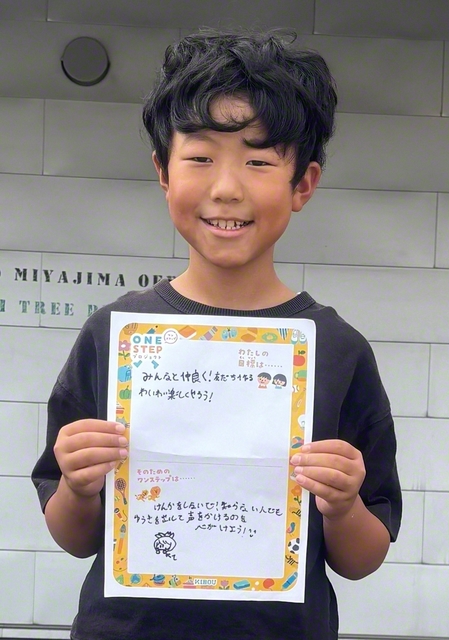 MIYAJIMA OFF
TREE
ONE
STEP
プロジェクト
わたしの
目標は……
みんなと仲良く！友だち作る
わいわい楽しくやろう！
そのための
ワンステップは……
けんかをしないで！知らない人にも
ゆうきを出して声をかけるのを
心がけよう！
MINOU